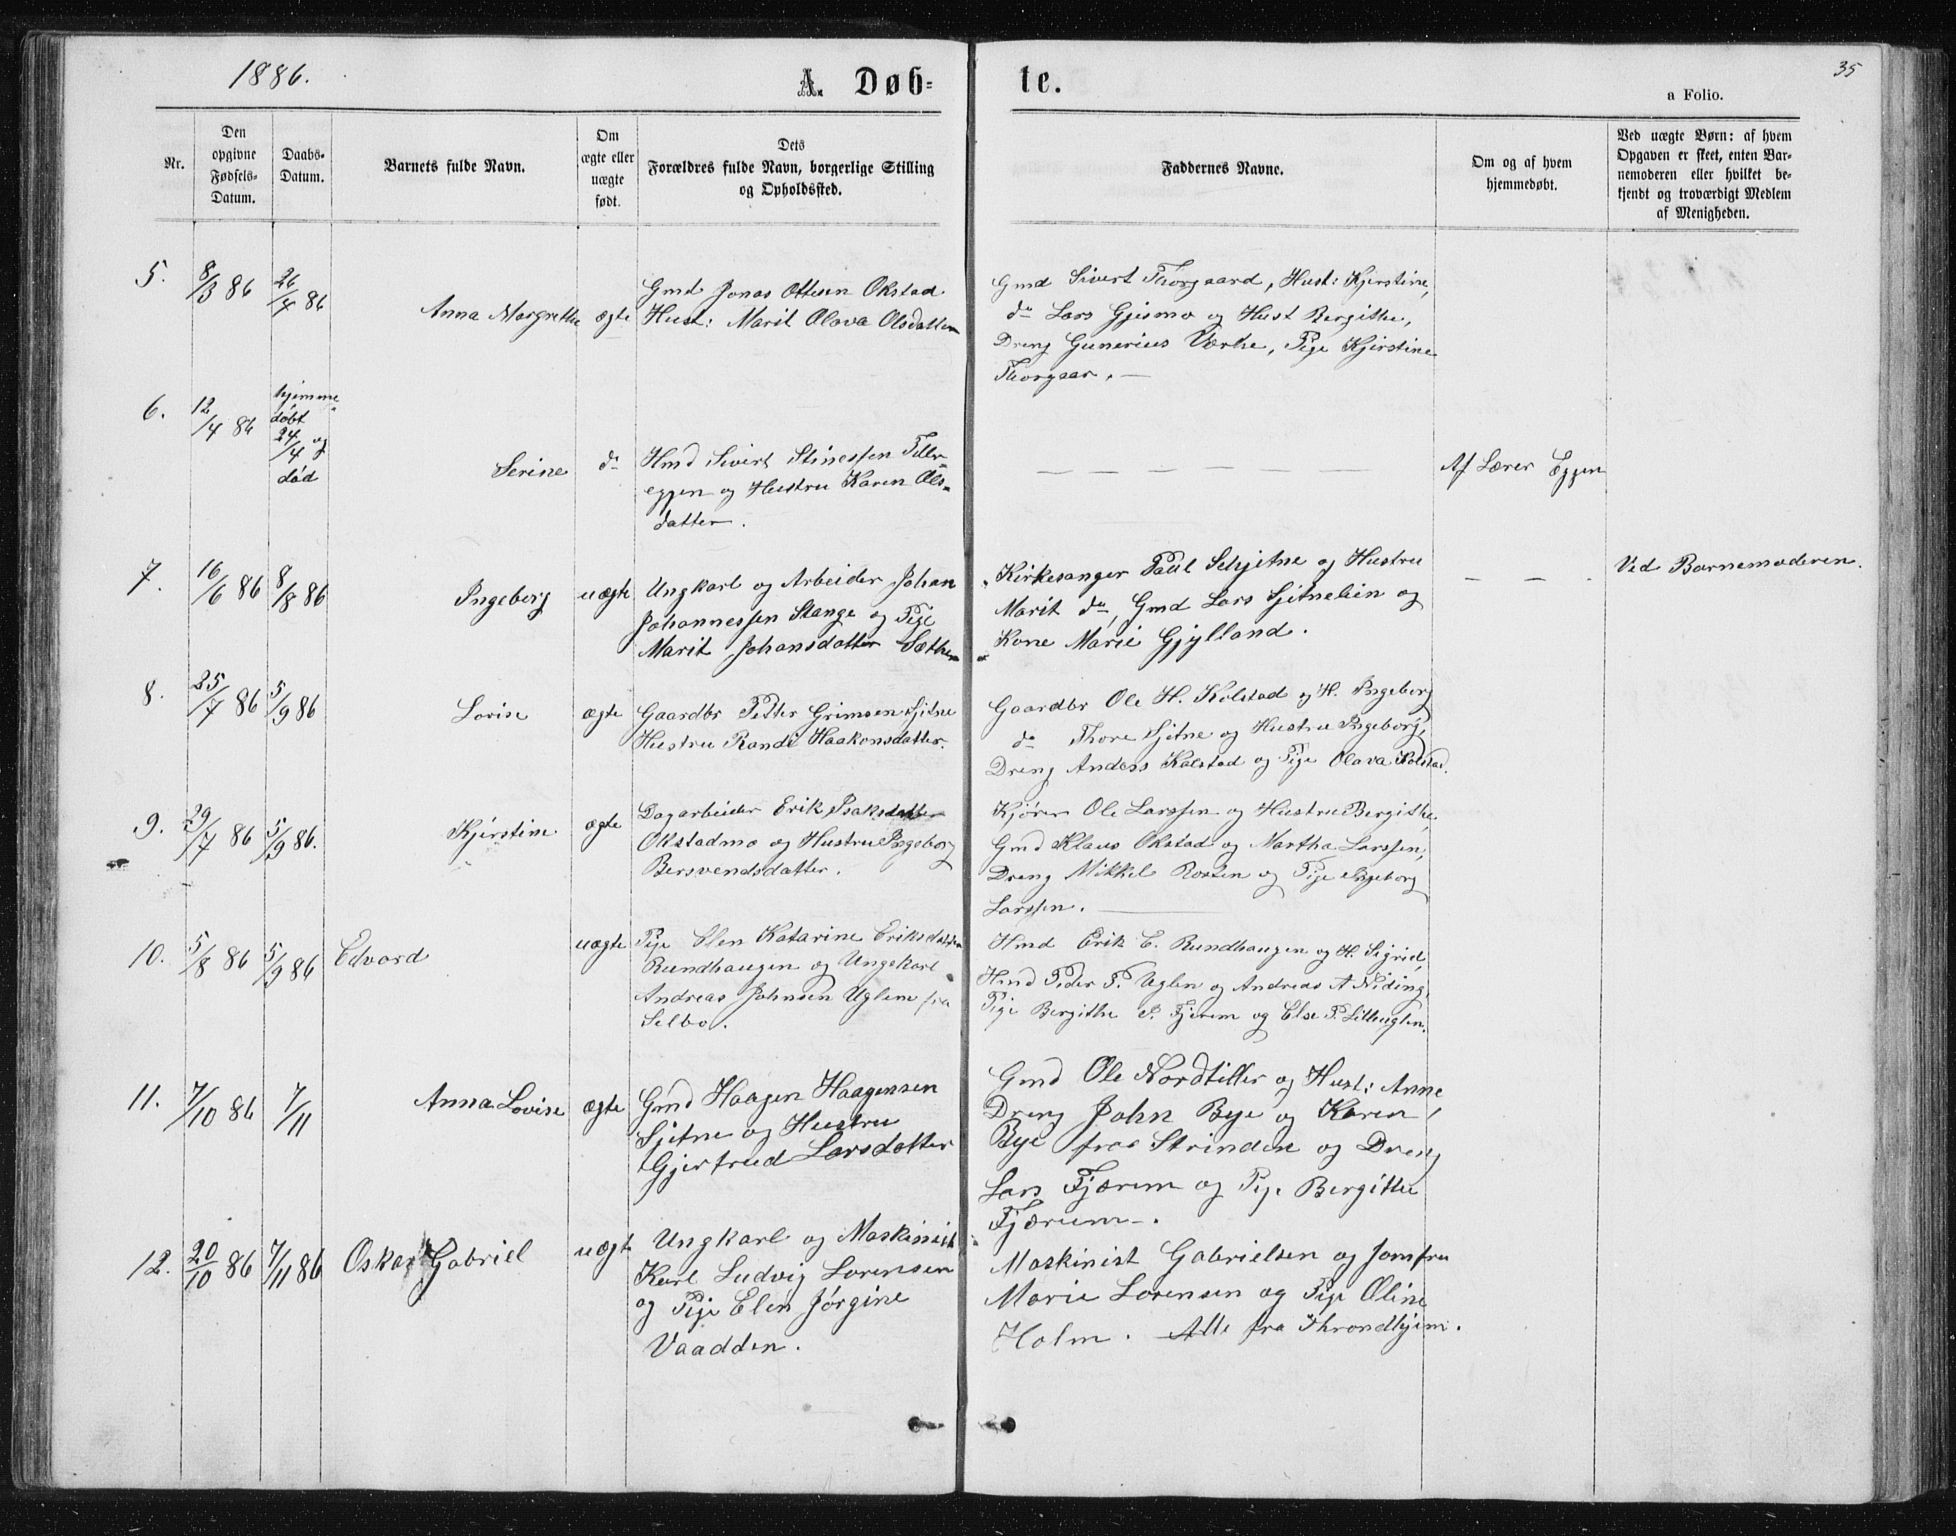 1886.
A. Døb=
te.
35
a Folio.
Nr.
Den
opgivne
Fødsels-
Datum.
Daabs-
Datum.
Barnets fulde Navn.
Om
ægte eller
uægte
født.
Dets
Forældres fulde Navn, borgerlige Stilling
og Opholdssted.
Faddernes Navne.
Om og af hvem
hjemmedøbt.
Ved uægte Børn: af hvem
Opgaven er skeet, enten Bar-
nemoderen eller hvilket be-
kjendt og troværdigt Medlem
af Menigheden.
5.
8/3 86
26/4 86
Anna Margrethe
ægte
Gmd Jonas Ottesen Okstad
Hust: Marit Olava Olsdatter
Gmd Sivert Thorgaard, Hust: Kjerstine,
do Lars Gjesmo og Hust Bergithe,
Dreng Gunerius Værke, Pige Kjerstine
Thorgaar. —
6.
12/4 86
hjemme-
døbt
24/4 og
død
Serine
do
Hmd Sivert Stinessen Tiller-
eggen og Hustru Karen Ols-
datter.
— — — — — — —
Af Lærer Eggen
7.
16/6 86
8/8 86
Ingeborg
uægte
Ungkarl og Arbeider Johan
Johannessen Stange og Pige
Marit Johansdatter Sæther
Kirkesanger Paul Schjetne og Hustru
Marit do, Gmd Lars Sjetnelein og
Kone Marie Gjylland.
— — -
Ved Barnemoderen.
8.
25/7 86
5/9 86
Lovise
ægte
Gaardbr Petter Grimsen Sjetne
Hustru Randi Haakonsdatter.
Gaardbr Ole H. Kolstad og H. Ingeborg
do Thore Sjetne og Hustru Ingeborg,
Dreng Anders Kolstad og Pige Olava Kolstad.
9.
29/7 86
5/9 86.
Kjerstine
ægte
Dagarbeider Erik Isak
Okstadmo og Hustru Ingeborg
Bersvendsdatter.
Kjører Ole Larssen og Hustru Bergithe,
Gmd Klaus Okstad og Martha Larssen,
Dreng Mikkel Rosten og Pige Ingeborg
Larssen. —
10.
5/8 86
5/9 86
Edvard
uægte
Pige Elen Katarine Eriksdatter
Rundhaugen og Ungekarl
Andreas Johnsen Uglem fra
Selbo.
Hmd Erik E. Rundhaugen og H. Sigrid,
Hmd Peder P. Uglen og Andreas A Niding,
Pige Bergithe P. Fjerem og Else P. Litleuglen.
11.
7/10 86
7/11
Anna Lovise
ægte
Gmd Haagen Haagensen
Sjetne og Hustru
Gjertrud Larsdatter
Gmd Ole Nordtiller og Hust: Anne
Dreng John Bye og Karen
Bye fra Strinden og Dreng
Lars Fjærem og Pige Bergitte
Fjærum —.
12.
20/10 86
7/11 86
Oskar Gabriel
uægte
Ungkarl og Maskinist
Karl Ludvig Lorensen
og Pige Elen Jørgine
Vaadden.
Maskinist Gabrielsen og Jomfru
Marie Lorensen og Pige Oline
Holm. Alle fra Throndhjem.